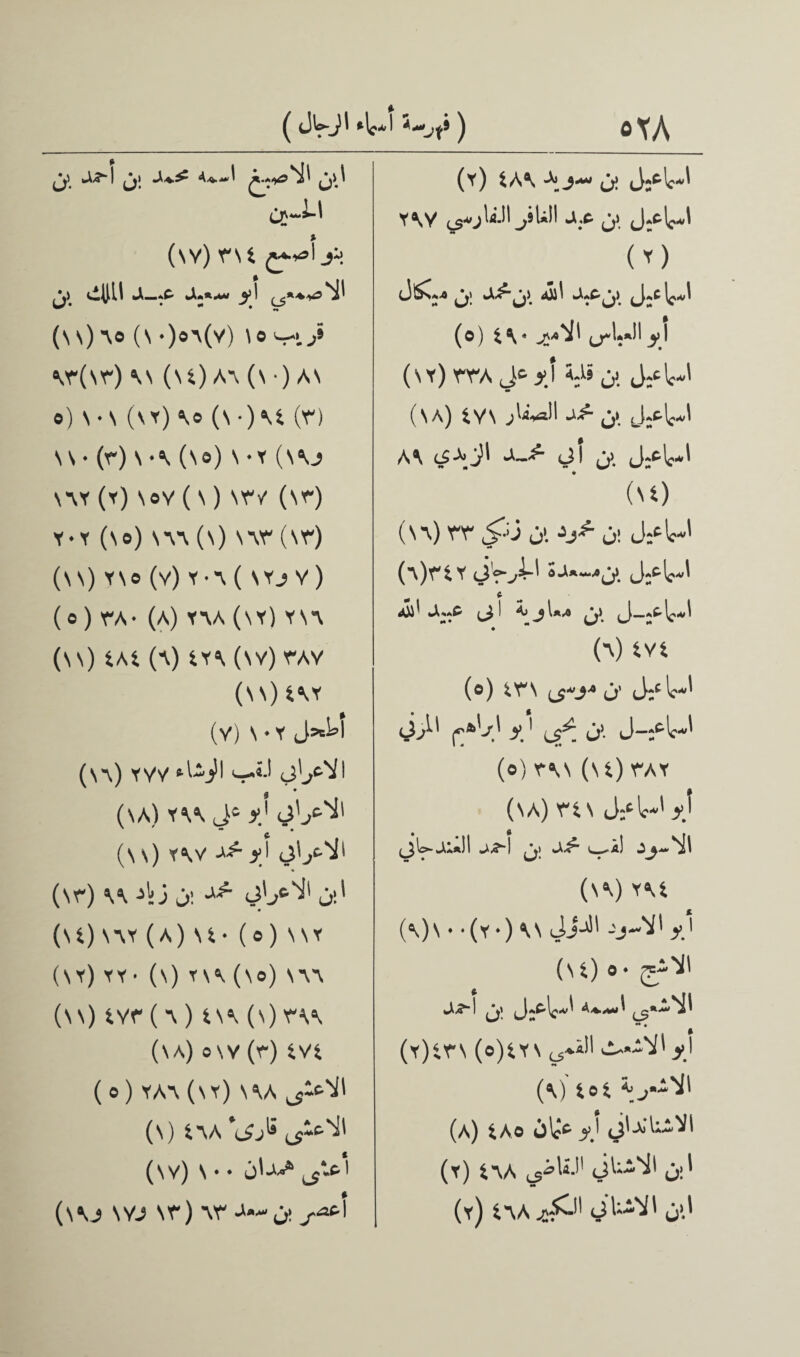 ٥٢٨ ( فهرسة أسماء الرجال )
اسماعيل بن سويد ٤٨٩ (٢)
اسماعيل بن عبد الغافر الفارسي ٢٩٧
(٢)
اسماعيل بن عبد الله بن محمد بن ميكال
أبو العباس الأمير ٤٩٠ (٥)
اسماعيل بن قلبة أبو علي ٣٣٨ (١٢)
اسماعيل بن محمد الصفار ٤٧١ (١٨)
اسماعيل بن أبي محمد اليزيدي ٨٩
(١٤)
اسماعيل بن محمود بن زنكي ٣٣ (١٦)
اسماعيل بن مسعدة الجرجاني ٣٤٢(٦)
اسماعيل بن معاوية أبي عبيد الله
٤٧٤ (٦)
اسماعيل بن موسى ٤٣١ (٥)
اسماعيل بن يحيى أبو ابراهيم المزني
٣٨٢ (١٤) ٣٩١ (٥)
أبو اسماعيل ٣٤١ (١٨)
الأسود لقب محمد بن أحمد الغندجاني
٢٩٤ (١٩)
أبو الأسود الدؤلي ٩١ (٢٠) ١٠٠(٩)
الأشج ٥٠ (١٤)
الأشجعي اسمه اسماعيل بن أحمد
أبو الأشعث القمي ٤٢١(٥) ٤٣١(٢)
الأشعرية ٤٥٤ (٩)
الأشنانداني أبو عثمان ٤٨٥ (٨)
ابن الأشناني القاضي ٤٦٨ (٢)
ابن الأشناني الكبير ٤٦٨ (٢)
ابن الأصبغ اسمه محمد بن أحمد بن
الحسين
أبو أصبغ ٣٦٤ (١٧)
الأصمعي أبو سعيد عبد الملك بن
قريب ١٥ (٧)٥٦(١٠) ٦٥ (١١)
٨١ (١٠) ٨٦ (١٤) ٩١ (١٣)٩٣
(٣) ٩٤(١٠) ٩٥ (١٢) ١٠١ (٥
و١٩) ١٠٢ (١٥) ١٠٩ (٣) ١١٠
(١٣) ١٣٧ (١) ١٥٧ (٢) ١٦٢
(١٣) ١٦٣ (١) ١٦٦ (١٥) ٢٠٢
(٧ و١٢) ٢٠٦ (٧) ٢١٥ (١١)
٢١٦ (١٢) ٢٦٨ (٨) ٣٨٠ (٥)
٣٨٧ (١٧) ٤٢٩ (٦) ٤٨٤ (١١)
٤٩٢ (١١)
أطحل ١٠٢ (٧)
الأعرابي لقب الرشاء ٢٧٧ (١٦)
الأعرابي أبو علي ٢٩٩ (١٨)
الأعرابي أبو محمد ٢٩٧ (١١)
ابن الأعرابي محمد بن زياد ٩٩ (١٣)
١١٢ (٥) ١٤٠ (٨) ١٦٢ (١٤)
١٦٦ (١٥) ٢١٩ (١) ٢٢٠ (١٢)
٣٩٩ (١) ٤١٩ (٦) ٤٧٣ (١١)
٤٧٤ (٣) ٥١٧ (١٨)
الأعشى ١٩٨ (١٢) ٢٨٦ (٥)
الأعشى قارئ ٤٦٨ (١)
أعشى همدان ١٠٠ (١٧)
أعصر بن سعد ٦٣ (١٣ و١٧ و١٩)